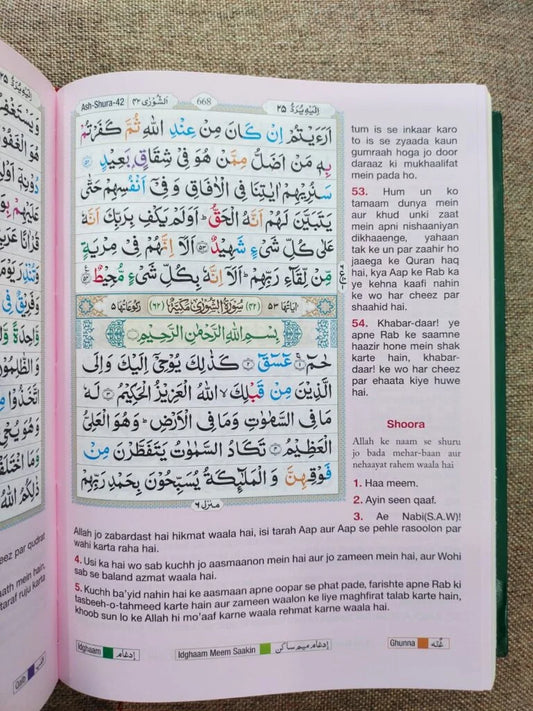 Ash-Shura-42 الشُّوْرٰى ٤٢
668
اِلَيْهِ يُرَدُّ ٢٥
اَرَءَيْتُمْ اِنْ كَانَ مِنْ عِنْدِ اللّٰهِ ثُمَّ كَفَرْتُمْ
بِهٖ مَنْ اَضَلُّ مِمَّنْ هُوَ فِيْ شِقَاقٍۭ بَعِيْدٍ
سَنُرِيْهِمْ اٰيٰتِنَا فِي الْاٰفَاقِ وَ فِيْۤ اَنْفُسِهِمْ حَتّٰى
يَتَبَيَّنَ لَهُمْ اَنَّهُ الْحَقُّ ؕ اَوَلَمْ يَكْفِ بِرَبِّكَ اَنَّهٗ
عَلٰى كُلِّ شَيْءٍ شَهِيْدٌ ٥٣ اَلَاۤ اِنَّهُمْ فِيْ مِرْيَةٍ
مِّنْ لِّقَآءِ رَبِّهِمْ ؕ اَلَاۤ اِنَّهٗ بِكُلِّ شَيْءٍ مُّحِيْطٌ ٥٤
اٰيَاتُهَا ٥٣ (٤٢) سُوْرَةُ الشُّوْرٰى مَكِّيَّةٌ (٦٢) رُكُوْعَاتُهَا ٥
بِسْمِ اللّٰهِ الرَّحْمٰنِ الرَّحِيْمِ
حٰمٓ ١ عٓسٓقٓ ٢ كَذٰلِكَ يُوْحِيْۤ اِلَيْكَ وَ اِلَى
الَّذِيْنَ مِنْ قَبْلِكَ ۙ اللّٰهُ الْعَزِيْزُ الْحَكِيْمُ ٣ لَهٗ
مَا فِي السَّمٰوٰتِ وَ مَا فِي الْاَرْضِ ؕ وَ هُوَ الْعَلِيُّ
الْعَظِيْمُ ٤ تَكَادُ السَّمٰوٰتُ يَتَفَطَّرْنَ مِنْ
فَوْقِهِنَّ وَ الْمَلٰٓئِكَةُ يُسَبِّحُوْنَ بِحَمْدِ رَبِّهِمْ
منزل ٦
tum is se inkaar karo
to is se zyaada kaun
gumraah hoga jo door
daraaz ki mukhaalifat
mein pada ho.
53. Hum un ko
tamaam dunya mein
aur khud unki zaat
mein apni nishaaniyan
dikhaaenge, yahaan
tak ke un par zaahir ho
jaaega ke Quran haq
hai, kya Aap ke Rab ka
ye kehna kaafi nahin
ke wo har cheez par
shaahid hai.
54. Khabar-daar! ye
apne Rab ke saamne
haazir hone mein shak
karte hain, khabar-
daar! ke wo har cheez
par ehaata kiye huwe
hai.
Shoora
Allah ke naam se shuru
jo bada mehar-baan aur
nehaayat rahem waala hai
1. Haa meem.
2. Ayin seen qaaf.
3. Ae Nabi(S.A.W)!
Allah jo zabardast hai hikmat waala hai, isi tarah Aap aur Aap se pehle rasoolon par
wahi karta raha hai.
4. Usi ka hai wo sab kuchh jo aasmaanon mein hai aur jo zameen mein hai, aur Wohi
sab se baland azmat waala hai.
5. Kuchh ba'yid nahin hai ke aasmaan apne oopar se phat pade, farishte apne Rab ki
tasbeeh-o-tahmeed karte hain aur zameen waalon ke liye maghfirat talab karte hain,
khoob sun lo ke Allah hi mo'aaf karne waala rehmat karne waala hai.
Idghaam ادغام
Idghaam Meem Saakin ادغام میم ساکن
Ghunna غُنّه
eez par qudrat
aath mein,
taraf ruju karta
Qalb